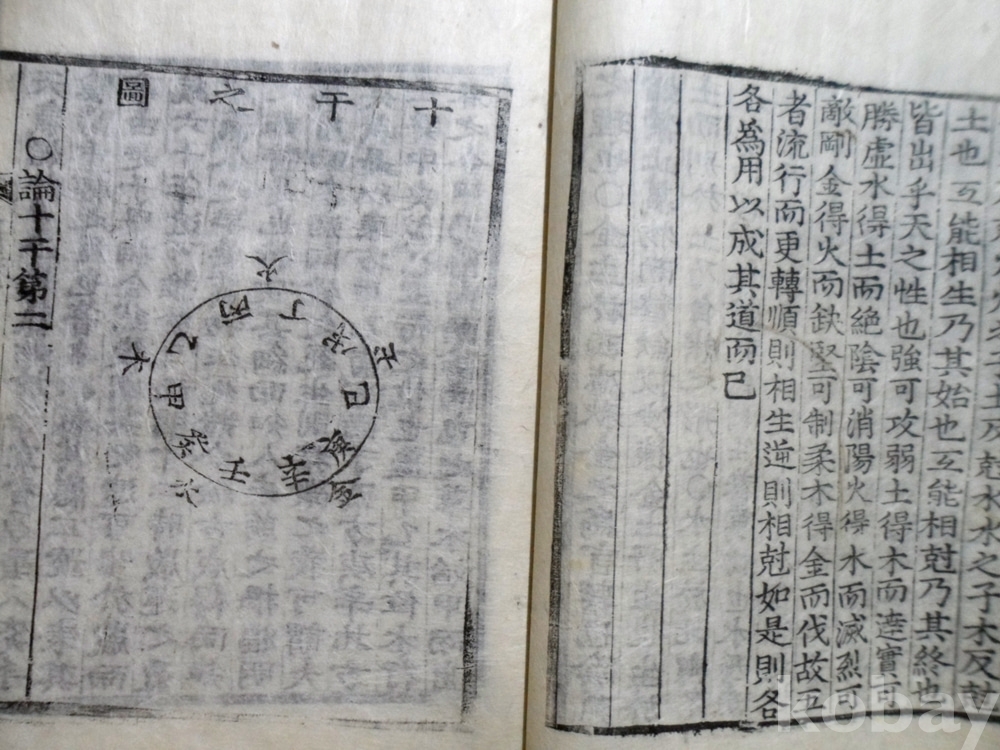 之子土反尅水水之子木反尅
土也互能相生乃其始也互能相尅乃其終也
皆出乎天之性也強可攻弱土得木而達實可
勝虛水得土而絶陰可消陽火得水而滅烈可
敵剛金得火而缺堅可制柔木得金而伐故五
者流行而更轉順則相生逆則相尅如是則各
各爲用以成其道而已
十干之圖
木
甲
乙
火
丙
丁
土
戊
己
金
庚
辛
水
壬
癸
○論十干第二
kobay